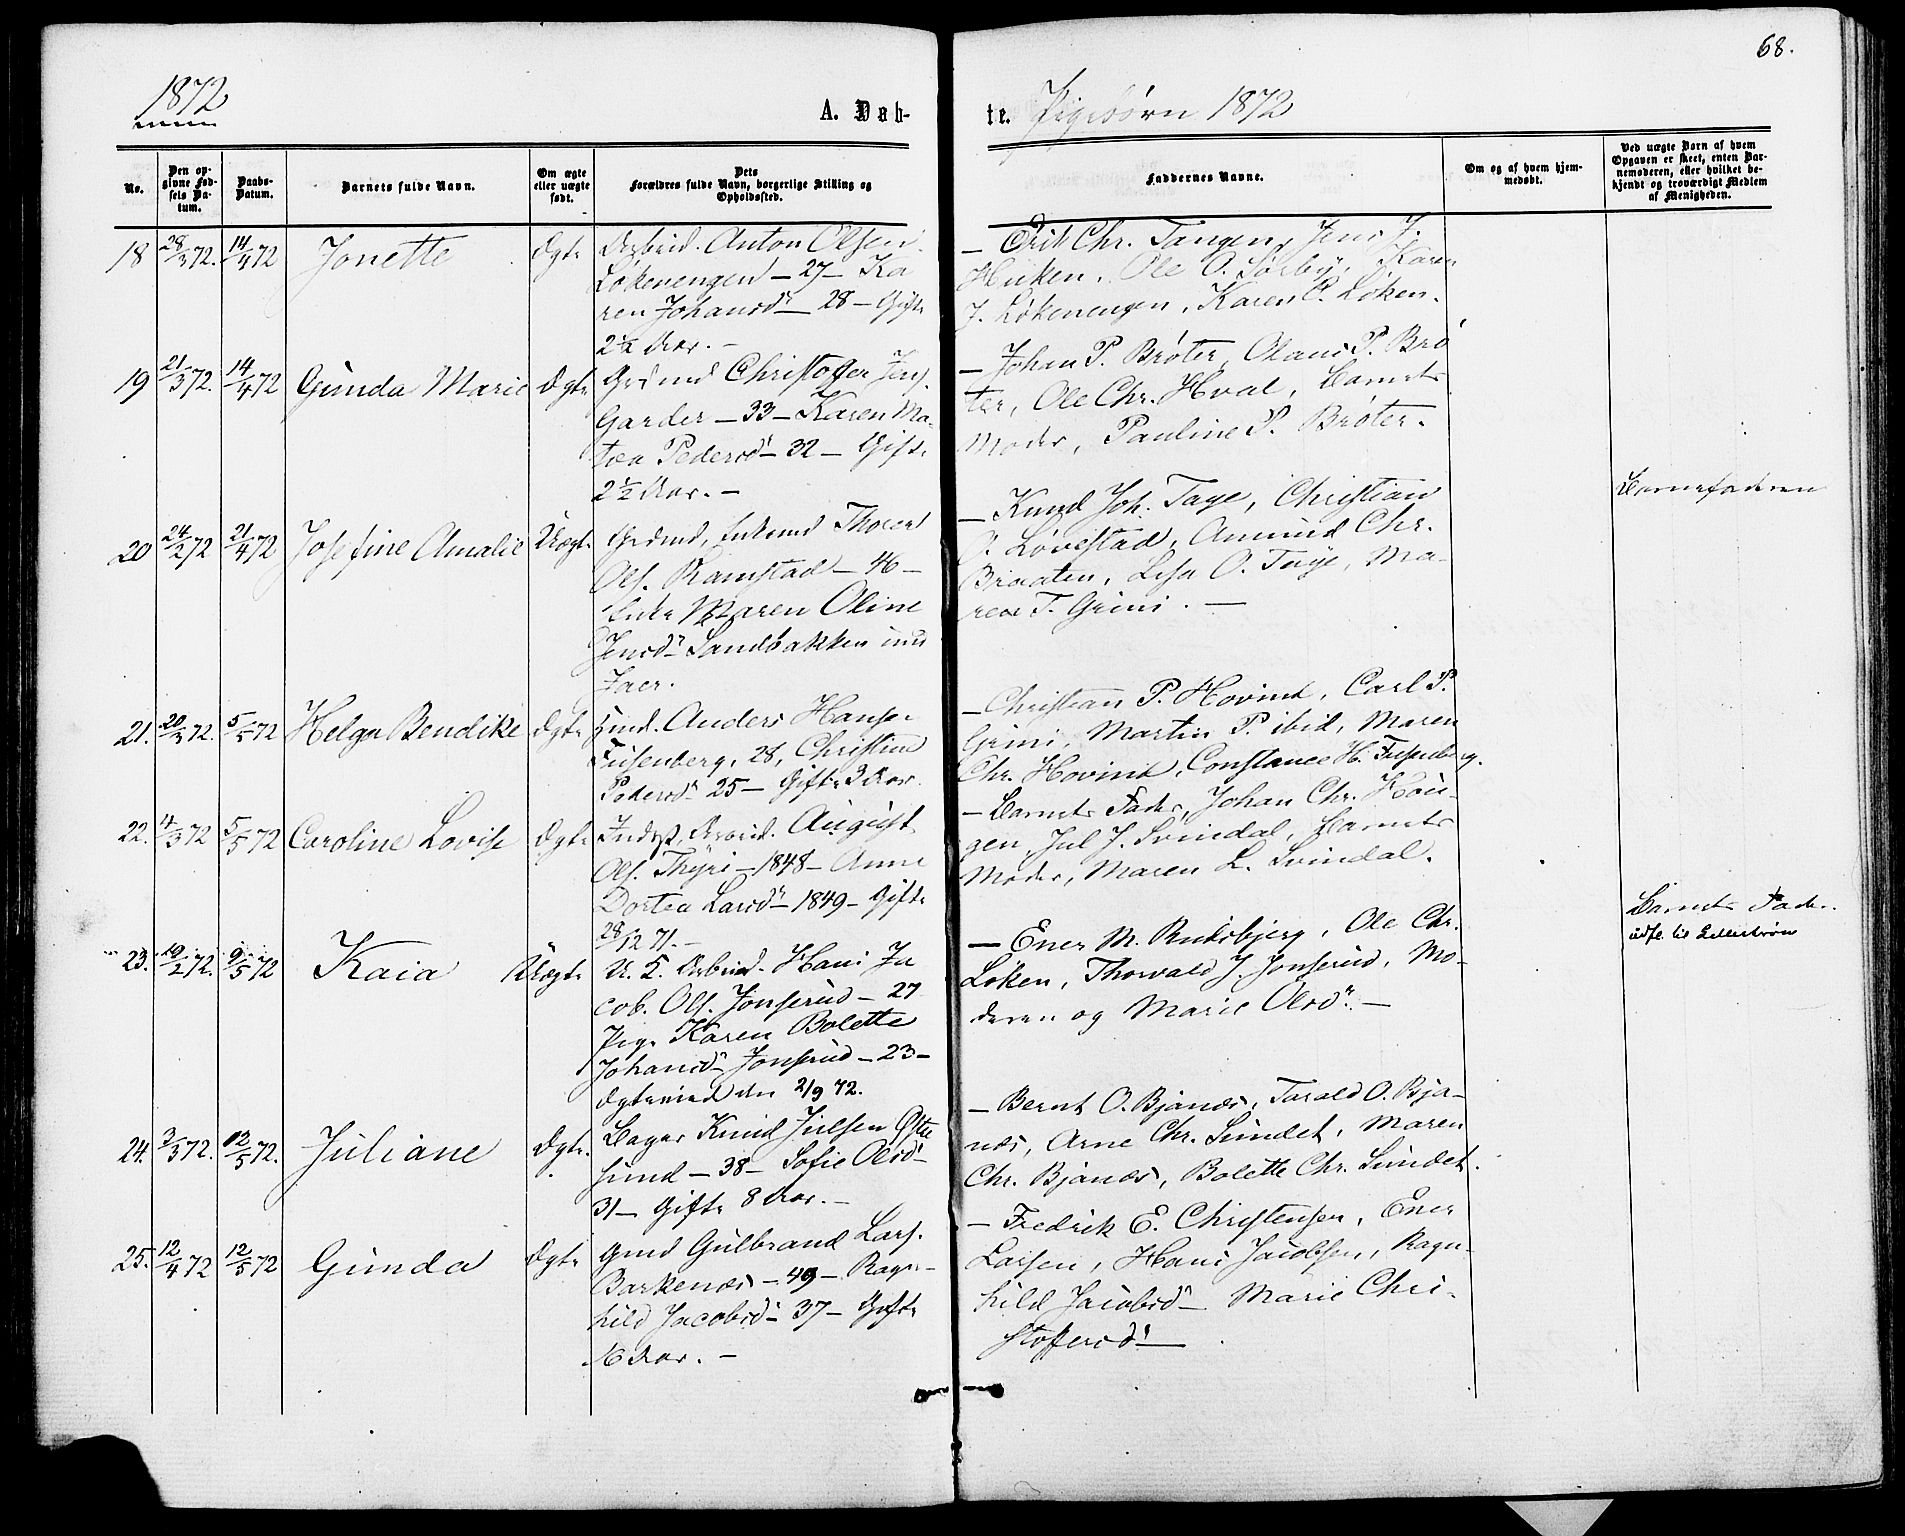 68.
1872
A. Døb-
te. Pigebørn 1872
No.
Den op-
givne Fød-
sels Da-
tum.
Daabs-
Datum.
Barnets fulde Navn.
Om ægte
eller uægte
født.
Dets
Forældres fulde Navn, borgerlige Stilling og
Opholdssted.
Faddernes Navne.
Om og af hvem hjem-
medøbt.
Ved uægte Barn af hvem
Opgaven er skeet, enten Bar-
nemoderen, eller hvilket be-
kjendt og troværdigt Medlem
af Menigheden.
18 28/3 72. 14/4 72 Jonette Ægte Arbeid. Anton Olsen
Løkenengen – 27 – Ka
ren Johansd. – 28 – Gifte
2½ Aar. –
– Erik Chr. Tangen, Jens J.
Ole O. Sørby, Karen
J. Løkenengen, Karen P. Løken.
19 21/3 72. 14/4 72 Gunda Marie Ægte Grdmd Christoffer Jens.
Garder – 33 – Karen Ma-
tea Pedersd. – 32 – Gifte
2½ Aar. –
– Johan P. Brøter, Olaus P. Brø
ter, Ole Chr. Hval, Barnets
Moder, Pauline P. Brøter.
20 24/2 72 21/4 72 Josefine Amalie Uægte Grdmd, Enkemd Thorer
Ols. Ramstad – 46 –
Enke Maren Oline
Jensd. Sandbakken
– Knud Joh. Taye, Christian
Løvestad, Amund Chr.
Braaten, Lisa O. Taye, Ma-
ren T. Grini. –
Barnefaderen
21. 20/3 72. 5/5 72 Helga Bendike Ægte Hmd. Anders Hansen
Fusenberg, 28, Christine
Pedersd. 25 – Gifte 3 Aar.
– Christian P. Hovind, Carl P.
Grini, Martin P. ibid, Maren
Chr. Hovind, Constance H. Fusenberg.
22. 4/3 72 5/5 72 Caroline Lovise Ægte Indst., Arbeid. August
Ols. Thyri – 1848 – Anne
Dortea Larsd. – 1849 – Gifte
28/12 71. –
– Barnets Fader, Johan Chr. Hau-
gen, Jul J. Svindal, Barnets
Moder, Maren L. Svindal.
23. 19/2 72. 9/5 72 Kaia Uægte U. K. Arbeid. Hans Ja
cob. Ols. Jonserud – 27
Pige Karen Bolette
Johansd. Jonserud – 23 –
Ægteviet den 2/9 72.
– Ener M. Rudsbjerg, Ole Chr.
Løken, Thorvald J. Jonserud, Mo-
deren og Marie Olsd. –
Barnets Fader
udfl. til Lillestrøm
24. 3/3 72. 12/5 72. Juliane Ægte. Bager Knud Julsen
sund – 38 – Sofie Olsd. –
31 – Gifte 8 Aar. –
– Bernt O. Bjanæs, Torald O. Bja-
næs, Arne Chr. Sundet, Maren
Chr. Bjanæs, Bolette Chr. Sundet.
25. 12/4 72 12/5 72 Gunda Ægte Gmd Gulbrand Lars.
Barkenæs – 49 – Ragn-
hild Jacobsd. – 37 – Gifte
16 Aar. –
– Fredrik E. Christensen, Ener
Larsen, Hans Jacobsen, Ragn-
hild Jacobsd. – Marie Chri-
stoffersd. –